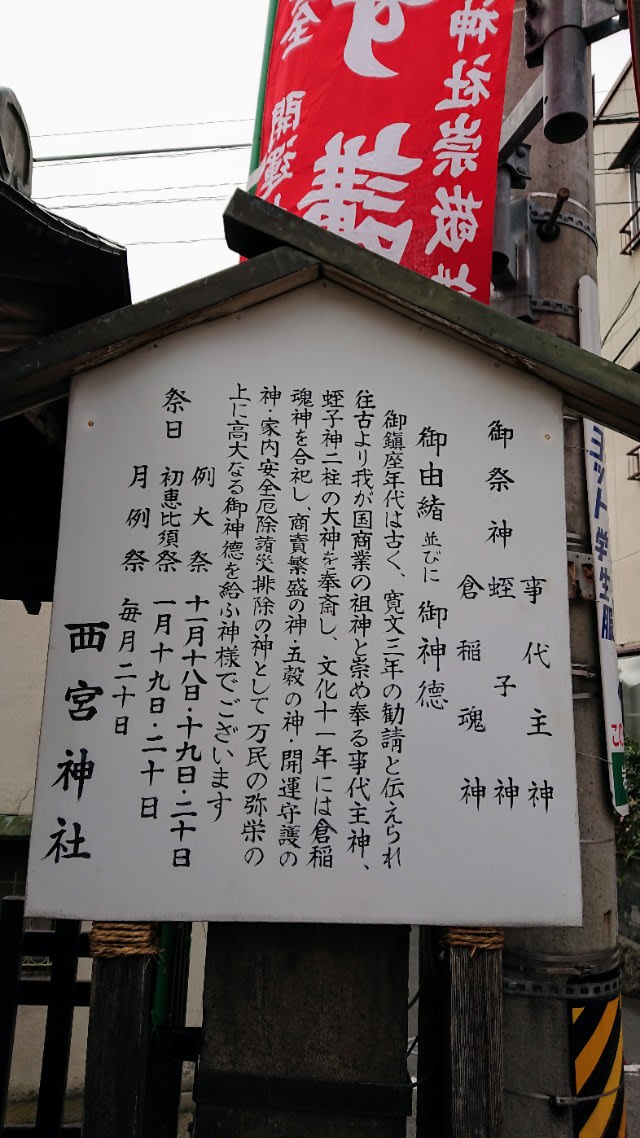 御祭神
事代主神
蛭子神
倉稲魂神
御由緒並びに御神徳
御鎮座年代は古く、寛文三年の勧請と伝えられ
往古より我が国商業の祖神と崇め奉る事代主神、
蛭子神二柱の大神を奉斎し、文化十一年には倉稲
魂神を合祀し、商賣繁盛の神・五穀の神・開運守護の
神・家内安全厄除諸災排除の神として万民の弥栄の
上に高大なる御神徳を給ふ神様でございます
祭日
例大祭 十一月十八日・十九日・二十日
初恵比須祭 一月十九日・二十日
月例祭 毎月二十日
西宮神社
神社崇敬
す講
全 開運
ヨット学生服